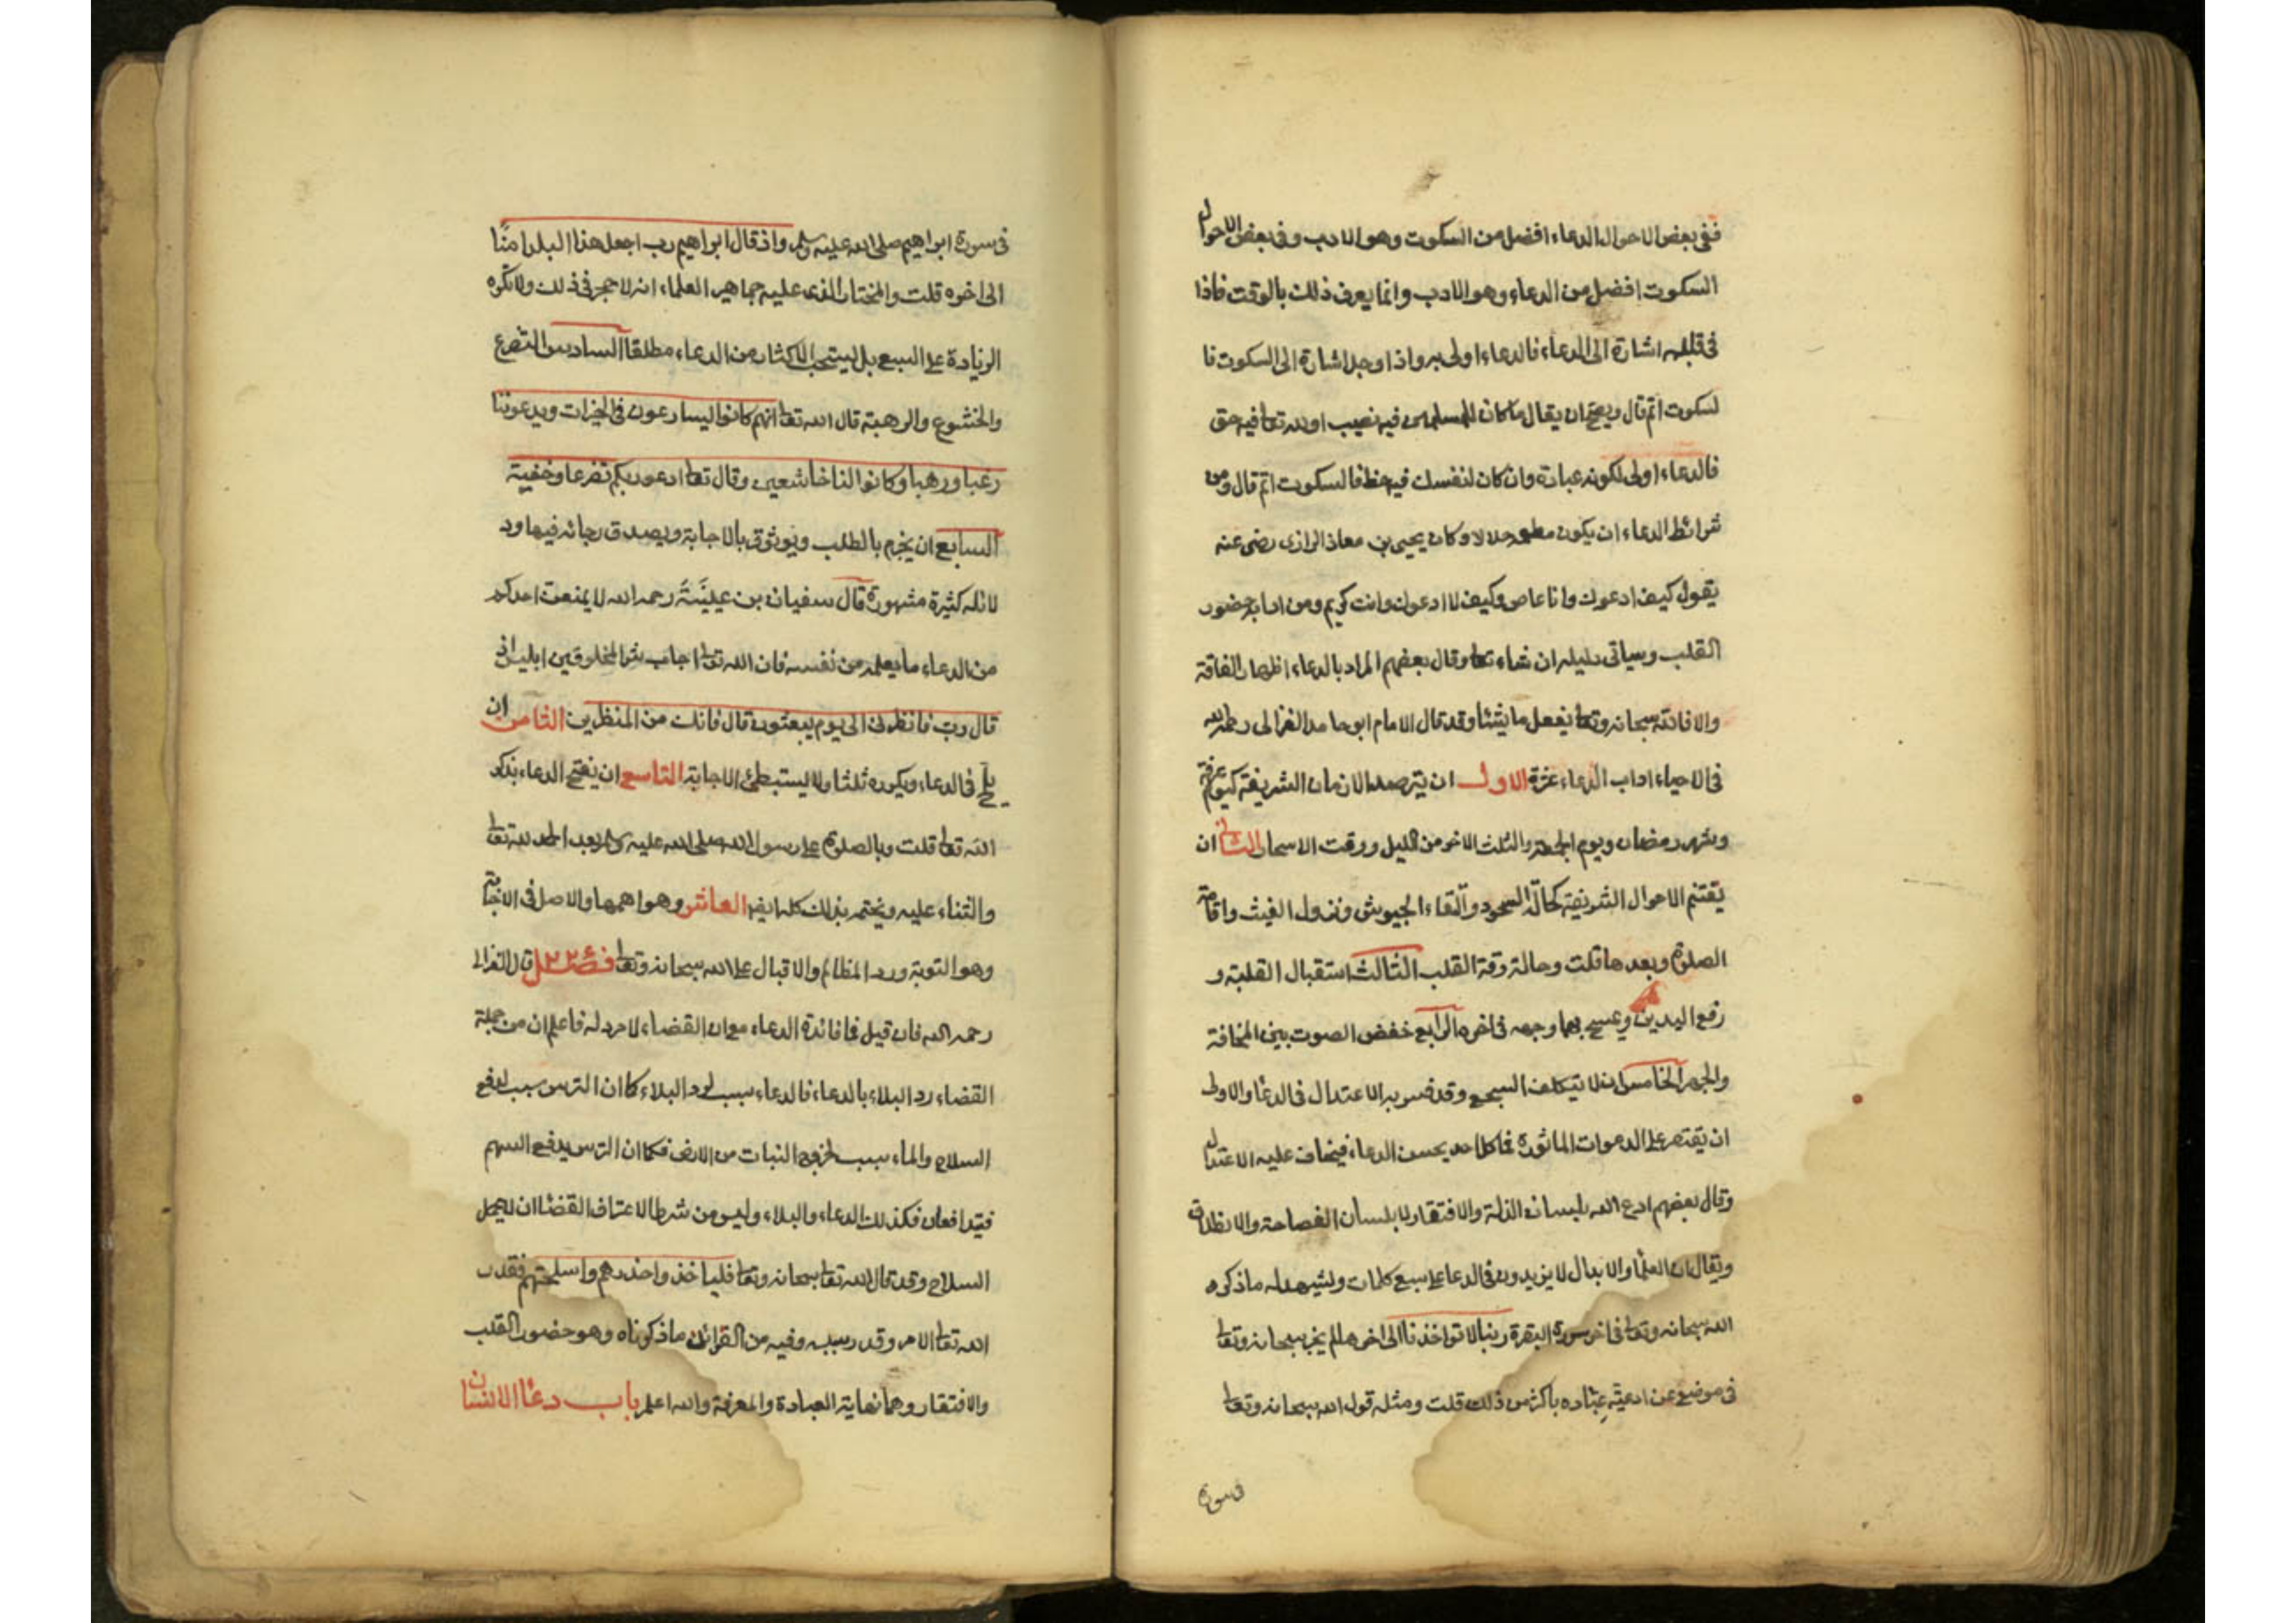 ففى بعض الاحوال الدعاء افضل من السكوت وهو الادب وفى بعض الاحوال
السكوت افضل من الدعاء وهو الادب وانما يعرف ذلك بالوقت فاذا
فى قلبه اشارة الى الدعاء فالدعاء اولى به واذا وجد اشارة الى السكوت فا
لسكوت اتم قال ويصح ان يقال ما كان للمسلمين فيه نصيب او لله تعا فيه حق
فالدعاء اولى لكونه عبادة وان كان لنفسك فيه حظ فالسكوت اتم قال ومن
شرائط الدعاء ان يكون مطعمه حلالا وكان يحيى بن معاذ الرازى رضى عنه
يقول كيف ادعوك وانا عاص وكيف لا ادعوك وانت كريم ومن ادابه حضور
القلب وسياتى دليله ان شاء تعا وقال بعضهم المراد بالدعاء اظهار الفاقة
والا فالله سبحانه وتعا يفعل ما يشا وقد قال الامام ابو حامد الغزالى رحمه الله
فى الاحياء اداب الدعاء عشرة الاول ان يترصد الازمان الشريفة كيوم عرفة
وشهر رمضان ويوم الجمعة والثلث الاخر من الليل ووقت الاسحار الثانى ان
يغتنم الاحوال الشريفة كحالة السجود والتقاء الجيوش ونزول الغيث واقامة
الصلوة وبعدها قلت وحالة رقة القلب الثالث استقبال القبلة و
رفع اليدين ويمسح بهما وجهه فى اخره الرابع خفض الصوت بين المخافة
والجهر الخامس ان لا يتكلف السجع وقد فسر به الاعتدال فى الدعا والاولى
ان يقتصر على الدعوات الماثورة فما كل احد يحسن الدعاء فيخاف عليه الاعتدال
وقال بعضهم ادع الله بلسان الذلة والافتقار لا بلسان الفصاحة والانطلاق
ويقال ان العلما والابدال لا يزيدون فى الدعا على سبع كلمات ويشهد له ما ذكره
الله سبحانه وتعا فى اخر سورة البقرة ربنا لا تواخذنا الى اخرها لم يخبر سبحانه وتعا
فى موضع عن ادعية عباده باكثر من ذلك قلت ومثله قول الله سبحانه وتعا
فى سورة
فى سورة ابراهيم صلى الله عليه وسلم واذ قال ابراهيم رب اجعل هذا البلد امنا
الى اخره قلت والمختار الذى عليه جماهير العلماء انه لا حجر فى ذلك ولا تكره
الزيادة على السبع بل يستحب الاكثار من الدعاء مطلقا السادس التضرع
والخشوع والرهبة قال الله تعا انهم كانوا يسارعون فى الخيرات ويدعوننا
رغبا ورهبا وكانوا لنا خاشعين وقال تعا ادعو ربكم تضرعا وخفية
السابع ان يجزم بالطلب ويوثوق بالاجابة ويصدق رجائه فيها ود
لائله كثيرة مشهورة قال سفيان بن عيينة رحمه الله لا يمنعن احدكم
من الدعاء ما يعلمه من نفسه فان الله تعا اجاب شر المخلوقين ابليس اذ
قال رب فانظرنى الى يوم يبعثون قال فانك من المنظرين الثامن ان
يلح فى الدعاء ويكرره ثلثا ولا يستبطئ الاجابة التاسع ان يفتح الدعاء بذكر
الله تعا قلت وبالصلوة على رسول الله صلى الله عليه وسلم بعد الحمد لله تعا
والثناء عليه ويختمه بذلك كله ايضا العاشر وهو اهمها والاصل فى الاجابة
وهو التوبة ورد المظالم والاقبال على الله سبحانه وتعا فصل قال الغزالى
رحمه الله فان قيل فما فائدة الدعاء مع ان القضاء لا مرد له فاعلم ان من جملة
القضاء رد البلاء بالدعاء فالدعاء سبب لرد البلاء كما ان الترس سبب لدفع
السلاح والماء سبب لخروج النبات من الارض فكما ان الترس يدفع السهم
فيتدافعان فكذلك الدعاء والبلاء وليس من شرط الاعتراف القضا ان لا يحمل
السلاح وقد قال الله تعا سبحانه وتعا فلياخذوا حذرهم واسلحتهم فقدر
الله تعا الامر وقدر سببه وفيه من القرائن ما ذكرناه وهو حضور القلب
والافتقار وهما نهاية العبادة والمعرفة والله اعلم باب دعا الانسان